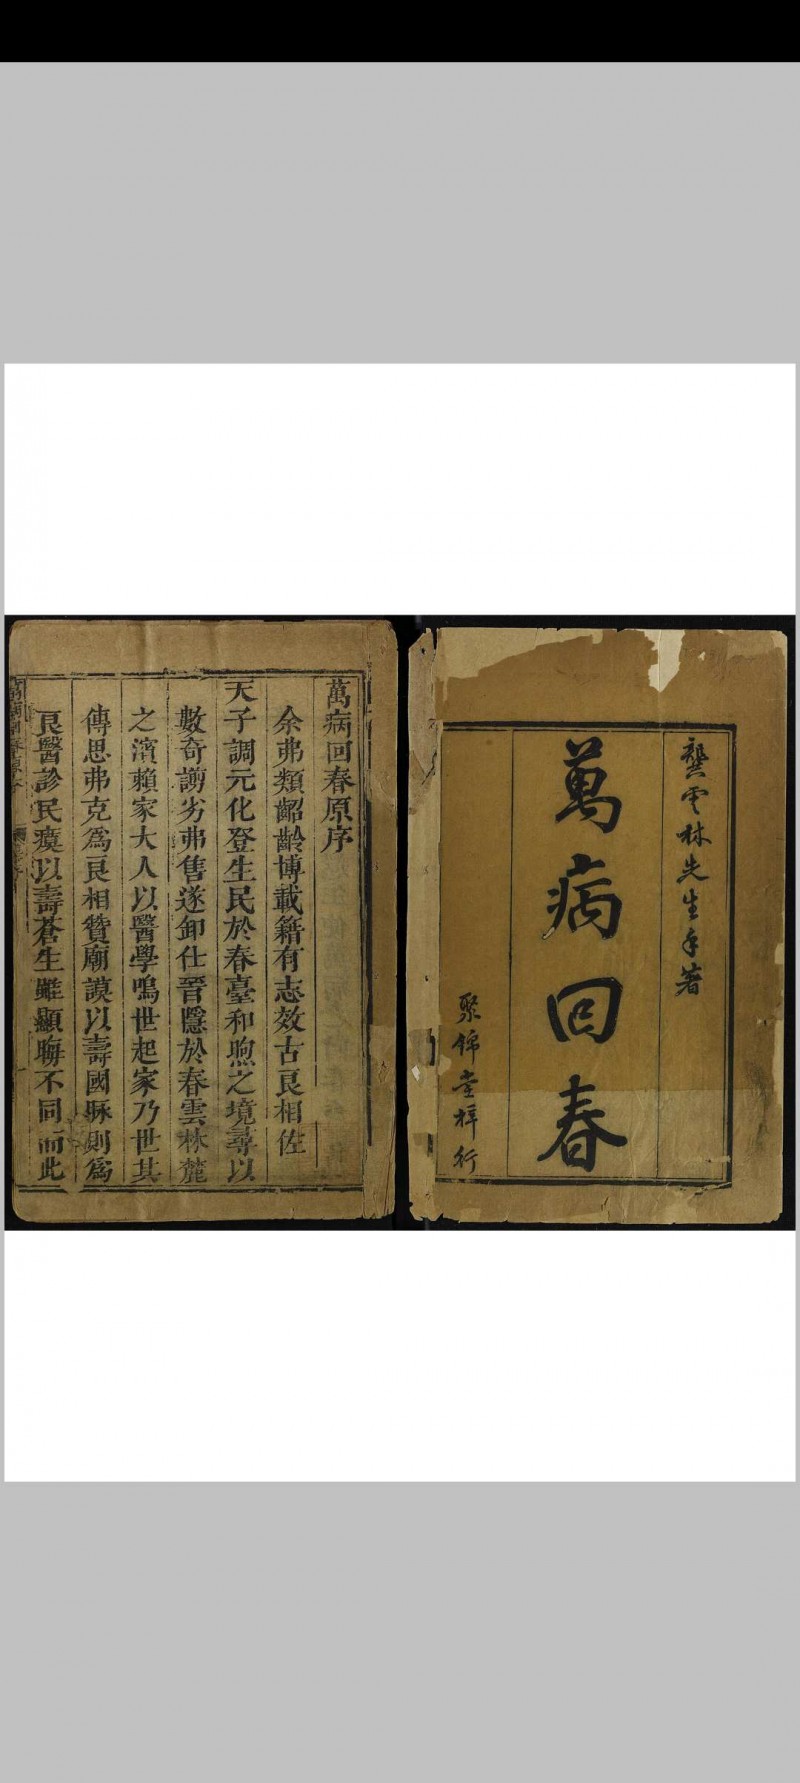 龔雲林先生手著
萬病回春
聚錦堂梓行
萬病回春原序
余弗類齠齡博載籍有志效古良相佐
天子調元化登生民於春臺和煦之境尋以
數奇謭劣弗售遂卸仕晉隱於春雲林麓
之濱賴家大人以醫學鳴世起家乃世其
傳思弗克為良相贊廟謨以壽國脉則為
良醫診民瘼以壽蒼生雖顯晦不同而此